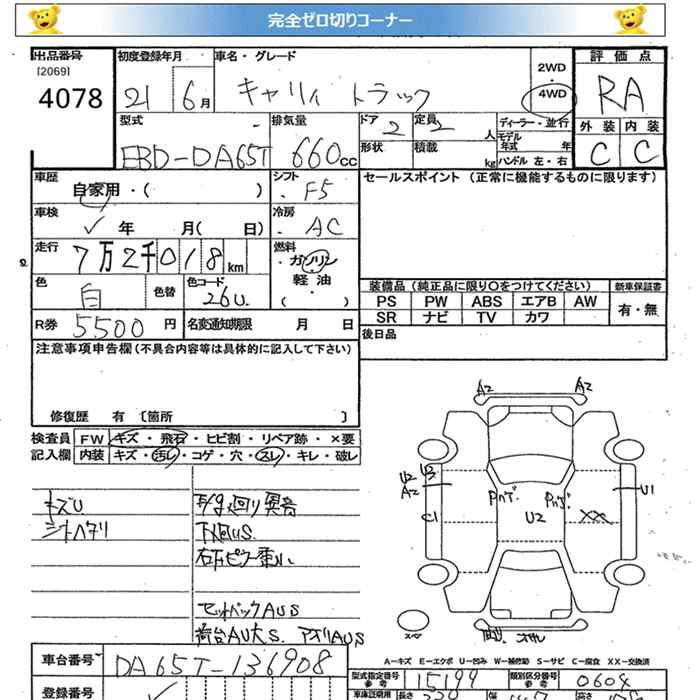 完全ゼロ切りコーナー
出品番号 初度登録年月 車名・グレード 評価点
[2069]
4078 21 6月 キャリィ トラック 2WD 4WD RA
型式 排気量 ドア 定員 ディーラー・並行 外装 内装
EBD-DA65T 660cc 2 2人 モデル年式 年 C C
形状 積載 kg ハンドル 左・右
車歴 シフト セールスポイント (正常に機能するものに限ります)
自家用・( ) F5
車検 冷房
年 月( 日) AC
走行 燃料
7万2千018km ガソリン
軽油
( )
色 色替 色コード 装備品 (純正品に限り○をつけてください) 新車保証書
白 26U PS PW ABS エアB AW 有・無
SR ナビ TV カワ
R券 5500円 名変通知期限 月 日 後日品
注意事項申告欄 (不具合内容等は具体的に記入して下さい)
修復歴 有 [箇所 ]
検査員 FW キズ・飛石・ヒビ割・リペア跡・×要
記入欄 内装 キズ・汚レ・コゲ・穴・スレ・キレ・破レ
キズU
シートヘタリ
異音
下回りS
セットバックAUS
荷台AU大S アオリAUS
A2 A2
U2 U3
A2
C1
U2
XX
U1
A-キズ E-エクボ U-凹み W-補修跡 S-サビ C-腐食 XX-交換済
車台番号 DA65T-136908
型式指定番号 15199 類別区分番号 0604
登録番号